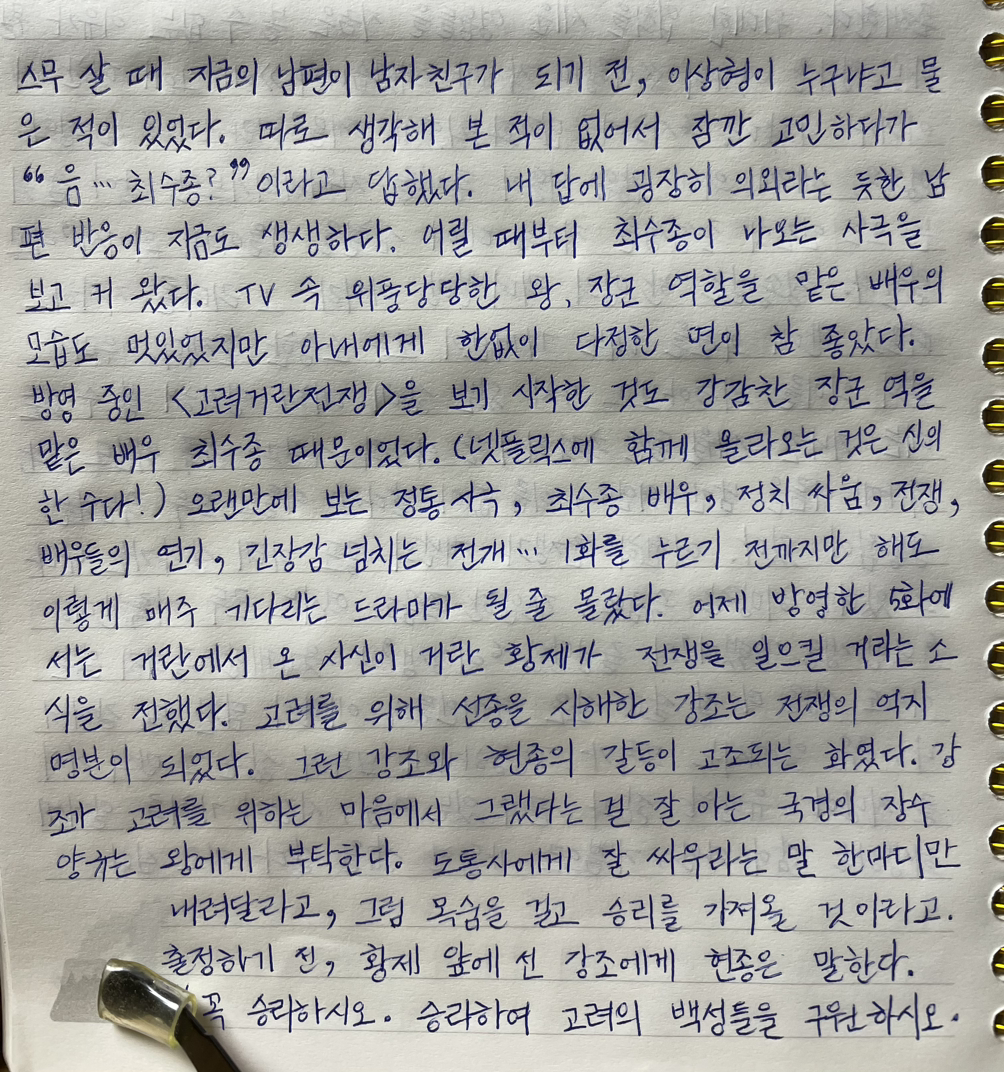 스무 살 때 지금의 남편이 남자친구가 되기 전, 이상형이 누구냐고 물
은 적이 있었다. 따로 생각해 본 적이 없어서 잠깐 고민하다가
“음… 최수종?”이라고 답했다. 내 답에 굉장히 의외라는 듯한 남
편 반응이 지금도 생생하다. 어릴 때부터 최수종이 나오는 사극을
보고 커 왔다. TV 속 위풍당당한 왕, 장군 역할을 맡은 배우의
모습도 멋있었지만 아내에게 한없이 다정한 면이 참 좋았다.
방영 중인 <고려거란전쟁>을 보기 시작한 것도 강감찬 장군 역을
맡은 배우 최수종 때문이었다. (넷플릭스에 함께 올라오는 것은 신의
한 수다!) 오랜만에 보는 정통사극, 최수종 배우, 정치 싸움, 전쟁,
배우들의 연기, 긴장감 넘치는 전개… 1화를 누르기 전까지만 해도
이렇게 매주 기다리는 드라마가 될 줄 몰랐다. 어제 방영한 5화에
서는 거란에서 온 사신이 거란 황제가 전쟁을 일으킬 거라는 소
식을 전했다. 고려를 위해 선종을 시해한 강조는 전쟁의 억지
명분이 되었다. 그런 강조와 현종의 갈등이 고조되는 화였다. 강
조가 고려를 위하는 마음에서 그랬다는 걸 잘 아는 국경의 장수
양규는 왕에게 부탁한다. 도통사에게 잘 싸우라는 말 한마디만
내려달라고, 그럼 목숨을 걸고 승리를 가져올 것이라고.
출정하기 전, 황제 앞에 선 강조에게 현종은 말한다.
꼭 승리하시오. 승리하여 고려의 백성들을 구원하시오.